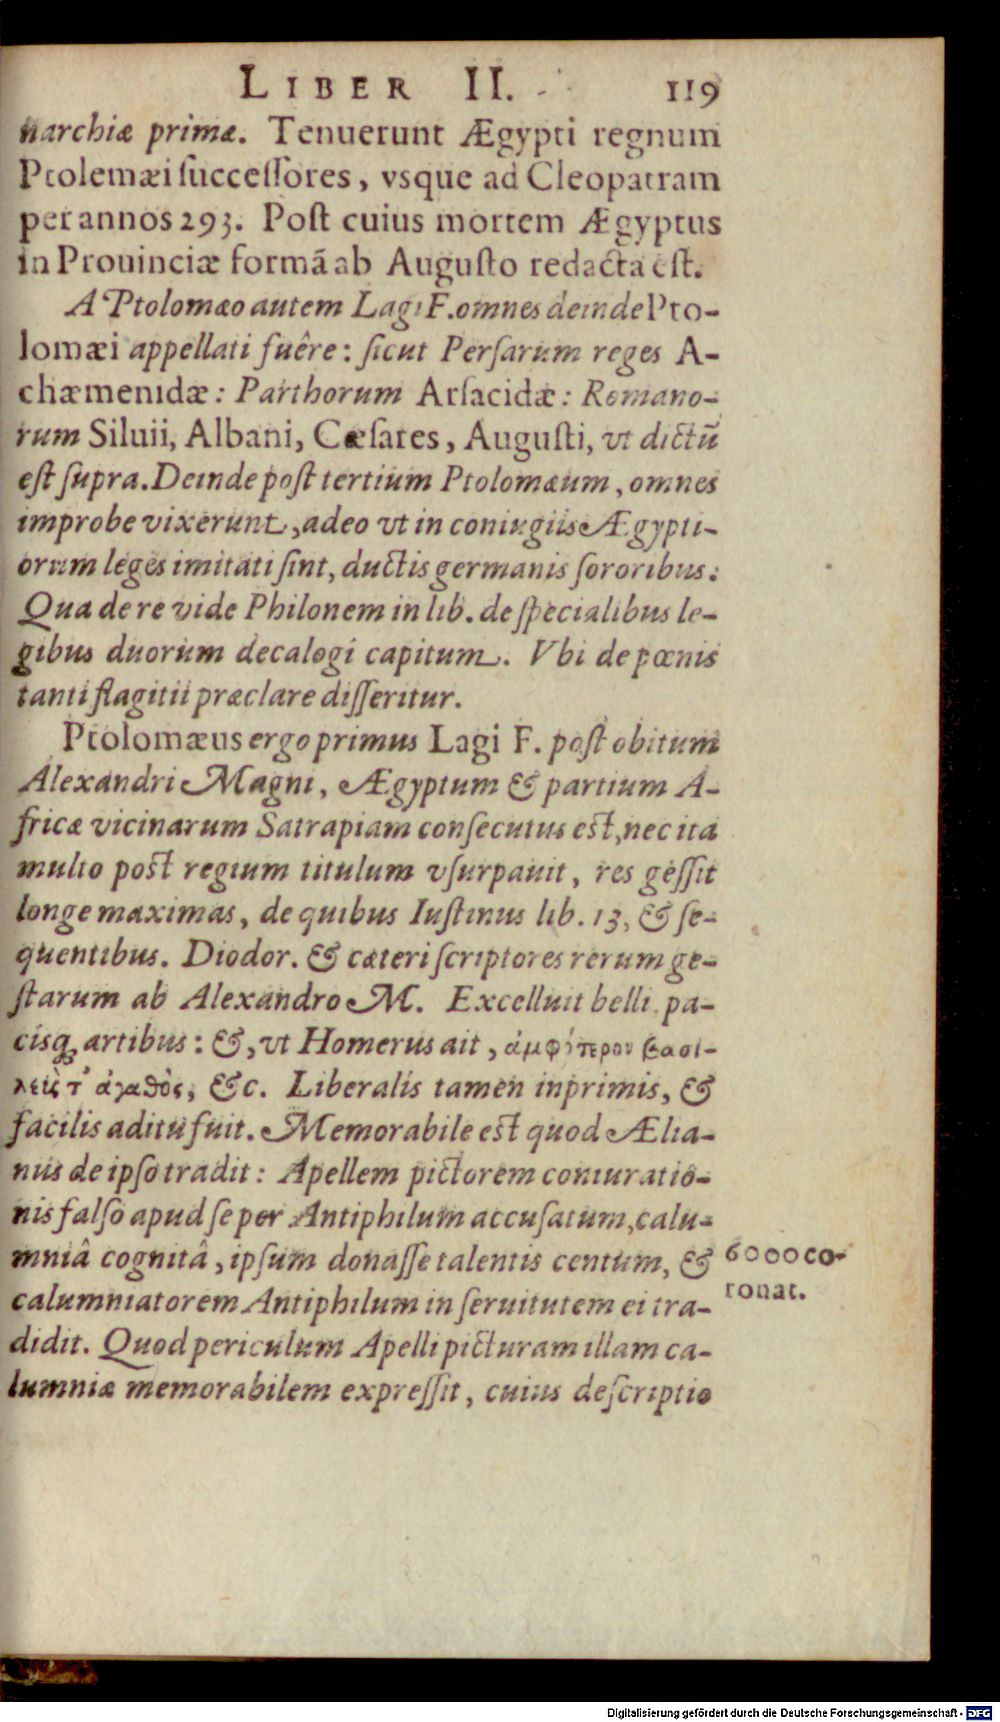 LIBER II. 119
narchiæ primæ. Tenuerunt Ægypti regnum
Ptolemæi ſucceſſores, vsque ad Cleopatram
per annos 293. Poſt cuius mortem Ægyptus
in Prouinciæ formã ab Auguſto redacta eſt.
A Ptolomæo autem Lagi F. omnes deinde Pto-
lomæi appellati fuêre: ſicut Perſarum reges A-
chæmenidæ: Parthorum Arſacidæ: Romano-
rum Siluii, Albani, Cæſares, Auguſti, vt dictũ
eſt ſupra. Deinde poſt tertium Ptolomæum, omnes
improbe vixerunt, adeo vt in coniugiis Ægypti-
orum leges imitati ſint, ductis germanis ſororibus:
Qua de re vide Philonem in lib. de ſpecialibus le-
gibus duorum decalogi capitum. Vbi de pœnis
tanti flagitii præclare diſſeritur.
Ptolomæus ergo primus Lagi F. poſt obitum
Alexandri Magni, Ægyptum & partium A-
fricæ vicinarum Satrapiam conſecutus eſt, nec ita
multo poſt regium titulum vſurpauit, res geſſit
longe maximas, de quibus Iuſtinus lib. 13, & ſe-
quentibus. Diodor. & cæteri ſcriptores rerum ge-
ſtarum ab Alexandro M. Excelluit belli pa-
cisq́ artibus: &, vt Homerus ait, ἀμφότερον βασι-
λεὺς τ' ἀγαθὸς, &c. Liberalis tamen inprimis, &
facilis aditu fuit. Memorabile eſt quod Ælia-
nus de ipſo tradit: Apellem pictorem coniuratio-
nis falſò apud ſe per Antiphilum accuſatum, calu-
mniâ cognitâ, ipſum donaſſe talentis centum, &
calumniatorem Antiphilum in ſeruitutem ei tra-
didit. Quod periculum Apelli picturam illam ca-
lumniæ memorabilem expreſſit, cuius deſcriptio
6000 co-
ronat.
Digitalisierung gefördert durch die Deutsche Forschungsgemeinschaft - DFG